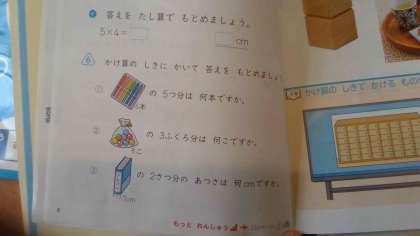 答えを たし算で もとめましょう。
5×4=
cm
かけ算の しきに かいて 答えを もとめましょ
① の 5つ分は 何本ですか。
6本
② の 3ふくろ分は 何こですか。
③ の 2さつ分の あつさは 何cmですか。
かけ算の しきで かける もの
もっと れんしゅう